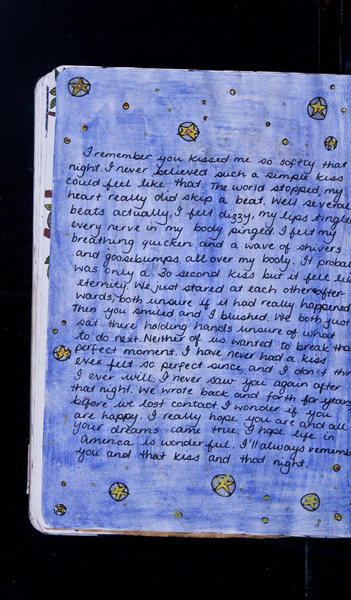 I remember you kissed me so softly that
night. I never believed such a simple kiss
could feel like that. The world stopped, my
heart really did skip a beat. Well several
beats actually, I felt dizzy, my lips tingled
every nerve in my body pinged. I felt my
breathing quicken and a wave of shivers
and goosebumps all over my body. It probab
was only a 30 second kiss but it felt like
eternity. We just stared at each other after
wards, both unsure if it had really happened.
Then you smiled and I blushed. We both just
sat there holding hands unsure of what
to do next. Neither of us wanted to break that
perfect moment. I have never had a kiss
ever felt so perfect since, and I don't thin
I ever will. I never saw you again after
that night. We wrote back and forth for years
before we lost contact. I wonder if you
are happy. I really hope you are and all
your dreams came true. I hope life in
America is wonderful. I'll always remembe
you and that kiss and that night.